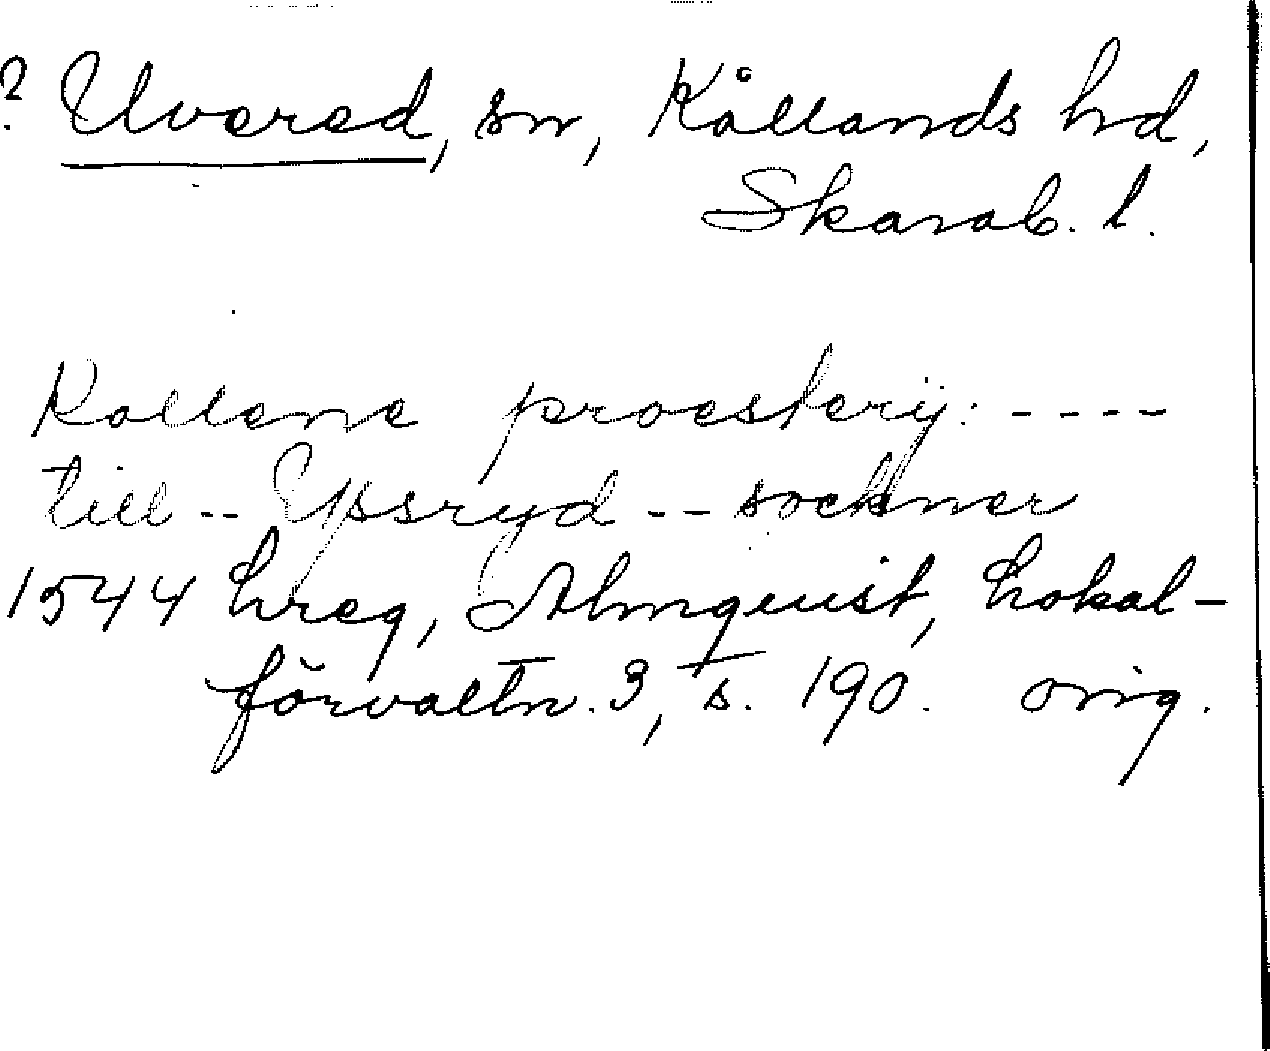 ? Uvered, sn, Kållands hd,
Skarab. l.
Kollene proesterij: ----
till -- Ypsryd -- sockner
1544 hreg, Almquist, Lokal-
förvaltn. 3, s. 190. orig.